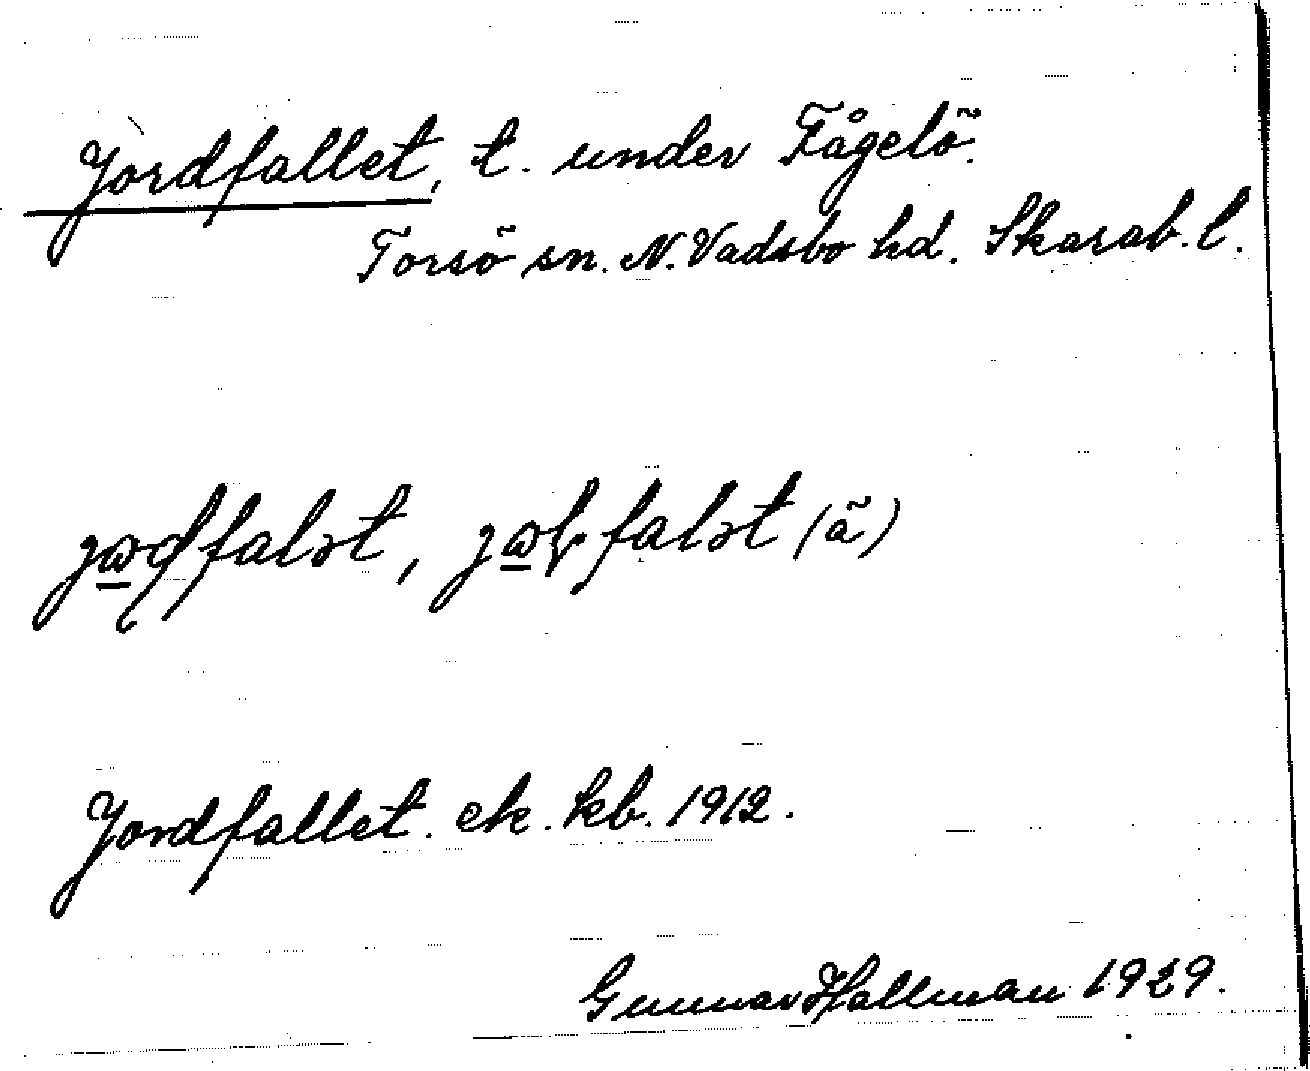 Jordfallet, t. under Fågelö.
Torsö sn. N. Vadsbo hd. Skarab. l.
(ã)
Jordfallet. ek. kb. 1912.
Gunnar Hallman 1929.